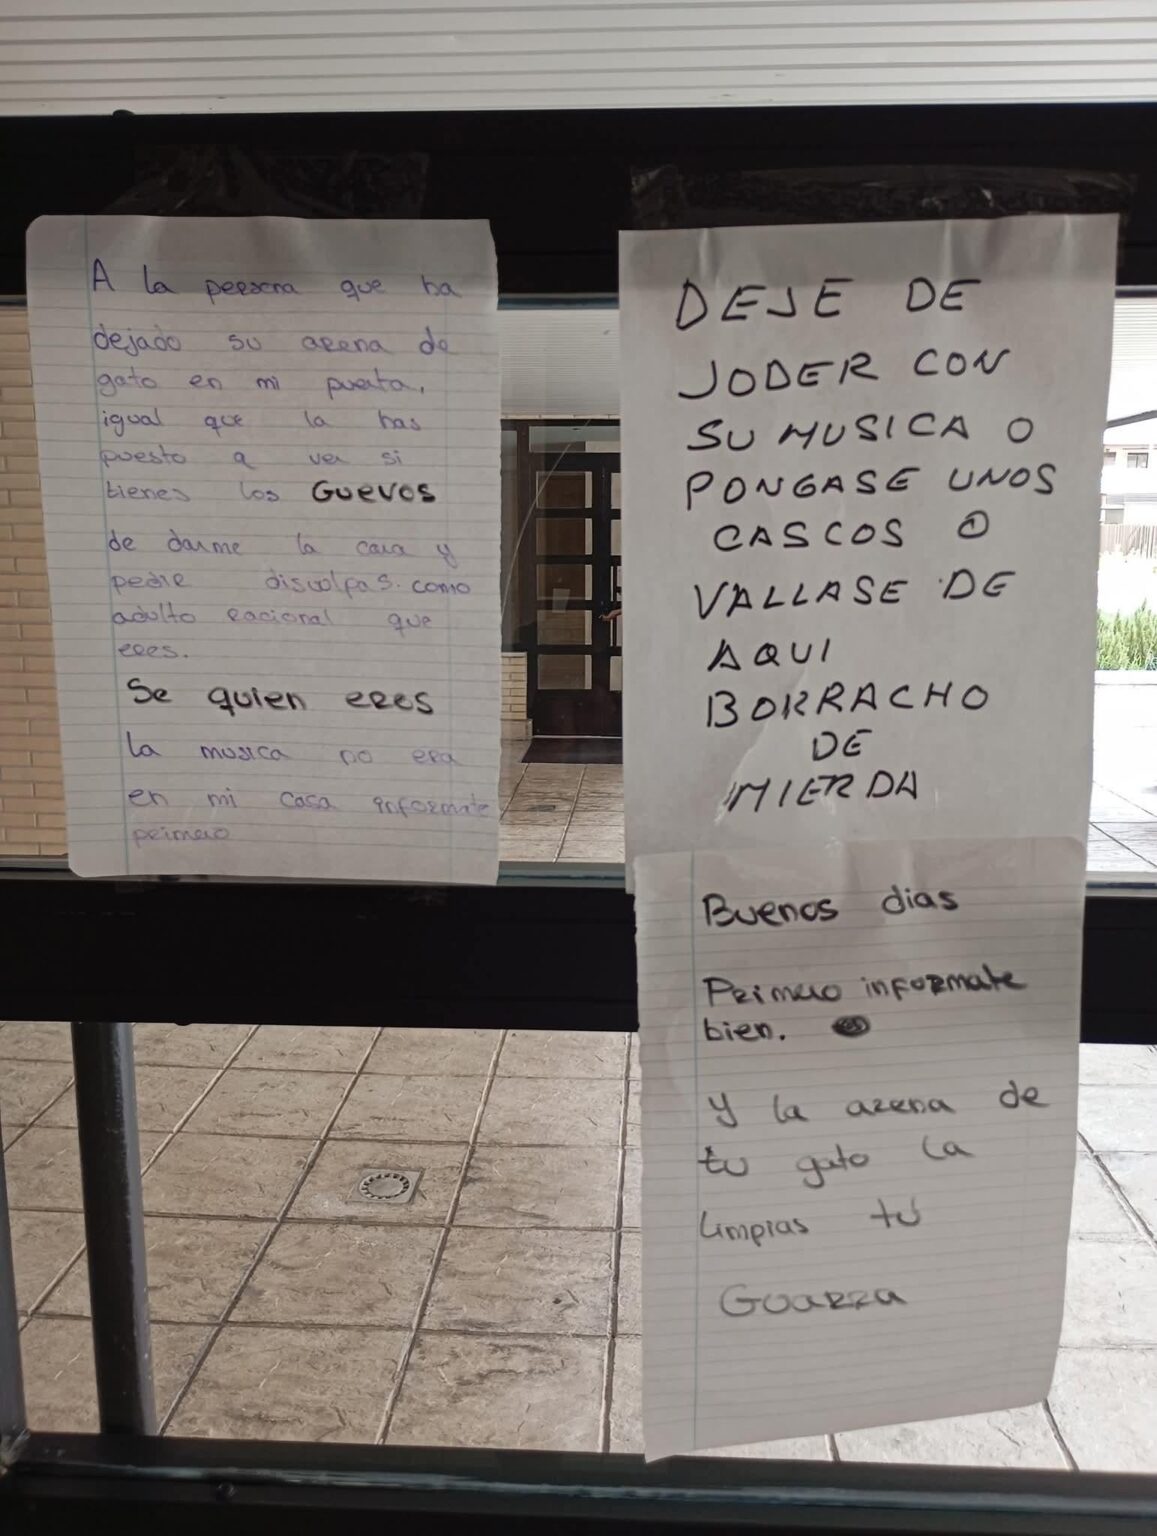 A la persona que ha
dejado su arena de
gato en mi puerta,
igual que la has
puesto a ver si
tienes los GUEVOS
de darme la cara y
pedir disculpas. como
adulto racional que
eres.
Se quien eres
la musica no era
en mi casa informate
primero
DEJE DE
JODER CON
SU MUSICA O
PONGASE UNOS
CASCOS O
VALLASE DE
AQUI
BORRACHO
DE
MIERDA
Buenos dias
Primero informate
bien.
Y la arena de
tu gato la
limpias tú
Guarra